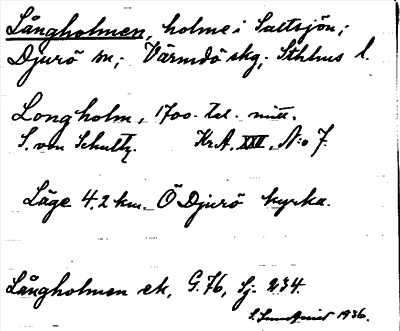 Långholmen, holme i Saltsjön;
Djurö sn; Värmdö skg; Sthlms l.
Longholm, 1700-tal. mitt.
S. von Schultz. Kr.A. XXII, N:o 7.
Läge 4.2 km. Ö Djurö kyrka.
Långholmen ek, G. 76, Sj. 234.
S. Sundquist 1936.